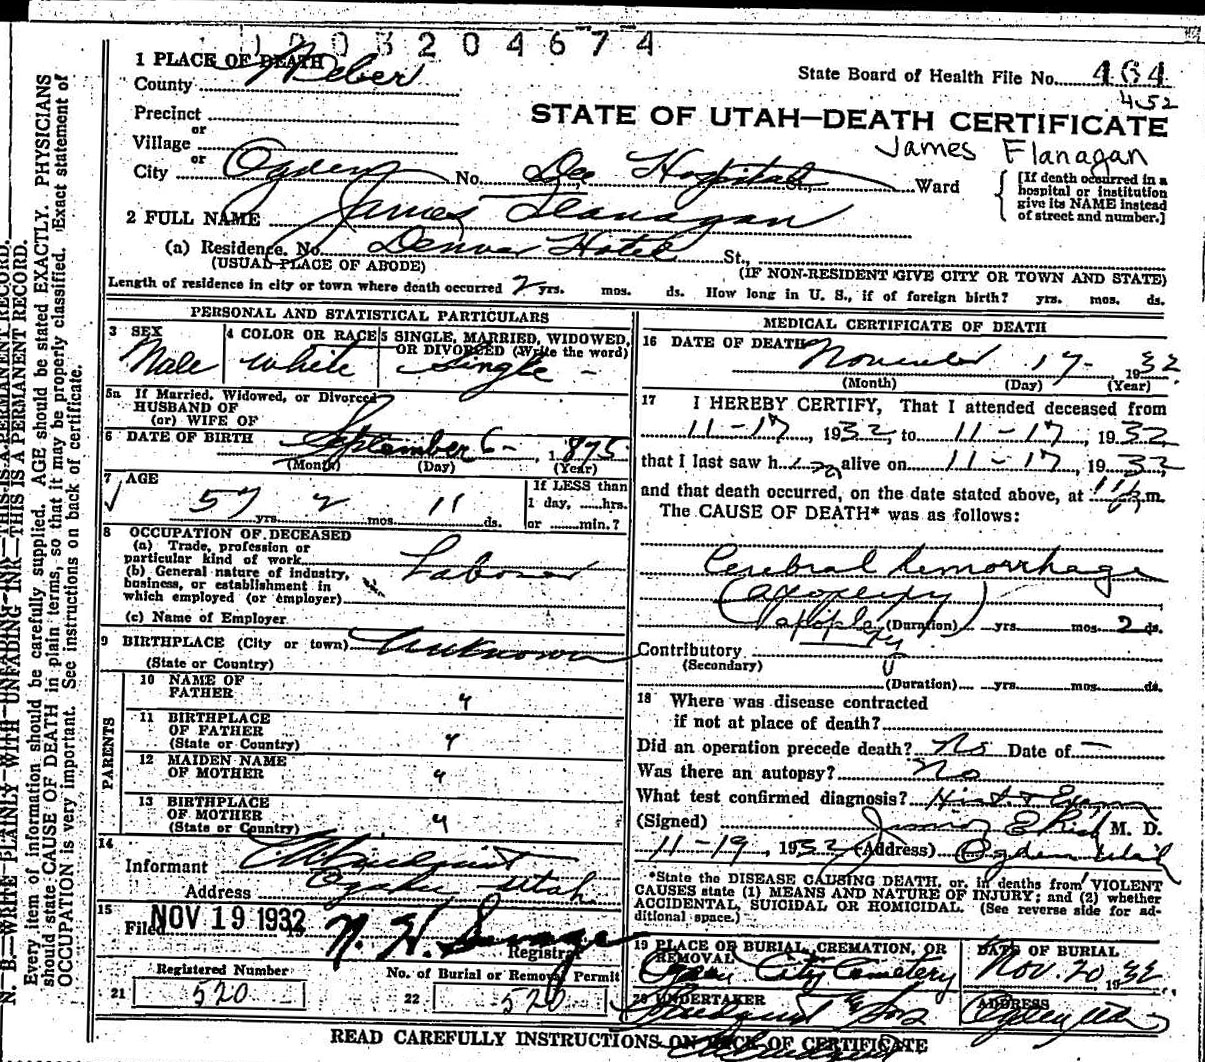 1003204674
1 PLACE OF DEATH
County Weber
State Board of Health File No. 464
452
Precinct
or
Village
or
STATE OF UTAH—DEATH CERTIFICATE
James Flanagan
City Ogden No. Dee Hospital St., Ward
[If death occurred in a
hospital or institution
give its NAME instead
of street and number.]
2 FULL NAME James Flanagan
(a) Residence. No. Denver Hotel St.,
(USUAL PLACE OF ABODE) (IF NON-RESIDENT GIVE CITY OR TOWN AND STATE)
Length of residence in city or town where death occurred 2 yrs. mos. ds. How long in U. S., if of foreign birth? yrs. mos. ds.
PERSONAL AND STATISTICAL PARTICULARS
3 SEX
Male
4 COLOR OR RACE
White
5 SINGLE, MARRIED, WIDOWED,
OR DIVORCED (Write the word)
Single -
5a If Married, Widowed, or Divorced
HUSBAND OF
(or) WIFE OF
6 DATE OF BIRTH September 6 - 1875
(Month) (Day) (Year)
7 AGE
57 yrs. 2 mos. 11 ds.
If LESS than
1 day, ......hrs.
or ......min.?
8 OCCUPATION OF DECEASED
(a) Trade, profession or
particular kind of work
Laborer
(b) General nature of industry,
business, or establishment in
which employed (or employer)
(c) Name of Employer
9 BIRTHPLACE (City or town) Unknown
(State or Country)
PARENTS
10 NAME OF
FATHER "
11 BIRTHPLACE
OF FATHER
(State or Country) "
12 MAIDEN NAME
OF MOTHER "
13 BIRTHPLACE
OF MOTHER
(State or Country) "
14
Informant
Address Ogden Utah
15
Filed NOV 19 1932 19
N. H. Savage
Registrar
Registered Number
21 520
No. of Burial or Removal Permit
22 520
MEDICAL CERTIFICATE OF DEATH
16 DATE OF DEATH November 17 - 1932
(Month) (Day) (Year)
17 I HEREBY CERTIFY, That I attended deceased from
11-17, 1932, to 11-17, 1932,
that I last saw him alive on 11-17, 1932,
and that death occurred, on the date stated above, at m.
The CAUSE OF DEATH* was as follows:
Cerebral hemorrhage
(apoplexy)
apoplexy
(Duration) yrs. mos. 2 ds.
Contributory
(Secondary)
(Duration) yrs. mos. ds.
18 Where was disease contracted
if not at place of death?
Did an operation precede death? No Date of —
Was there an autopsy? No
What test confirmed diagnosis? Hist & Exam
(Signed) Junior E Rich M. D.
11-19, 1932 (Address) Ogden Utah
*State the DISEASE CAUSING DEATH, or, in deaths from VIOLENT
CAUSES state (1) MEANS AND NATURE OF INJURY; and (2) whether
ACCIDENTAL, SUICIDAL OR HOMICIDAL. (See reverse side for ad-
ditional space.)
19 PLACE OF BURIAL, CREMATION, OR
REMOVAL
Ogden City Cemetery
DATE OF BURIAL
Nov. 20, 1932
20 UNDERTAKER
Lindquist & Sons
ADDRESS
Ogden Utah
READ CAREFULLY INSTRUCTIONS ON BACK OF CERTIFICATE
N. B.—WRITE PLAINLY WITH UNFADING INK—THIS IS A PERMANENT RECORD.
Every item of information should be carefully supplied. AGE should be stated EXACTLY. PHYSICIANS
should state CAUSE OF DEATH in plain terms, so that it may be properly classified. Exact statement of
OCCUPATION is very important. See instructions on back of certificate.